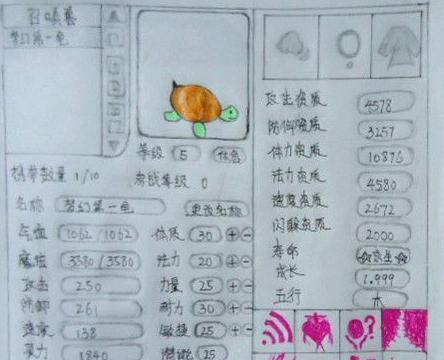 召唤兽
梦幻第一龟
等级 5 休息
携带数量 1/10
参战等级 0
名称 梦幻第一龟 更改名称
气血 1062/1062 体质 30
魔法 3580/3580 法力 20
攻击 250 力量 25
防御 261 耐力 30
速度 138 敏捷 25
灵力 1840 潜能 25
攻击资质 4578
防御资质 3257
体力资质 10876
法力资质 4580
速度资质 2672
闪躲资质 2000
寿命 ☆永生☆
成长 1.999
五行 木